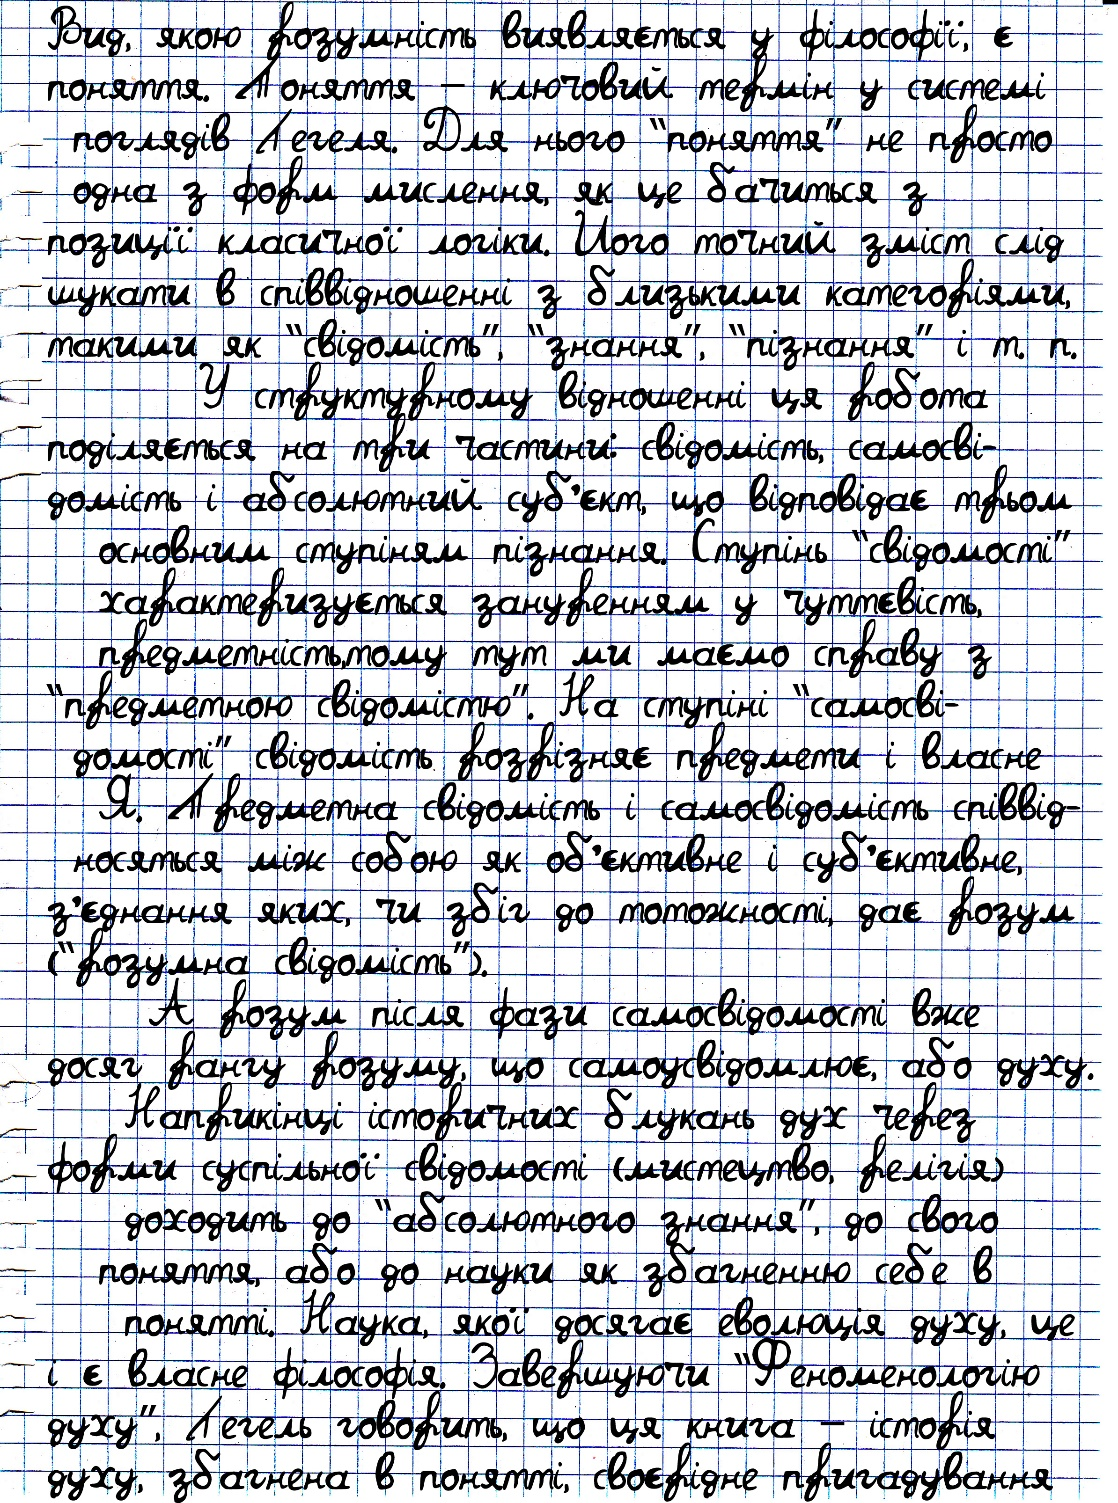 Вид, якою розумність виявляється у філософії, є
поняття. Поняття – ключовий термін у системі
поглядів Гегеля. Для нього "поняття" не просто
одна з форм мислення, як це бачиться з
позиції класичної логіки. Його точний зміст слід
шукати в співвідношенні з близькими категоріями,
такими як "свідомість", "знання", "пізнання" і т. п.
У структурному відношенні ця робота
поділяється на три частини: свідомість, самосві-
домість і абсолютний суб'єкт, що відповідає трьом
основним ступіням пізнання. Ступінь "свідомості"
характеризується зануренням у чуттєвість,
предметність,тому тут ми маємо справу з
"предметною свідомістю". На ступіні "самосві-
домості" свідомість розрізняє предмети і власне
Я. Предметна свідомість і самосвідомість співвід-
носяться між собою як об'єктивне і суб'єктивне,
з'єднання яких, чи збіг до тотожності, дає розум
("розумна свідомість").
А розум після фази самосвідомості вже
досяг рангу розуму, що самоусвідомлює, або духу.
Наприкінці історичних блукань дух через
форми суспільної свідомості (мистецтво, релігія)
доходить до "абсолютного знання", до свого
поняття, або до науки як збагненню себе в
понятті. Наука, якої досягає еволюція духу, це
і є власне філософія. Завершуючи "Феноменологію
духу", Гегель говорить, що ця книга – історія
духу, збагнена в понятті, своєрідне пригадування